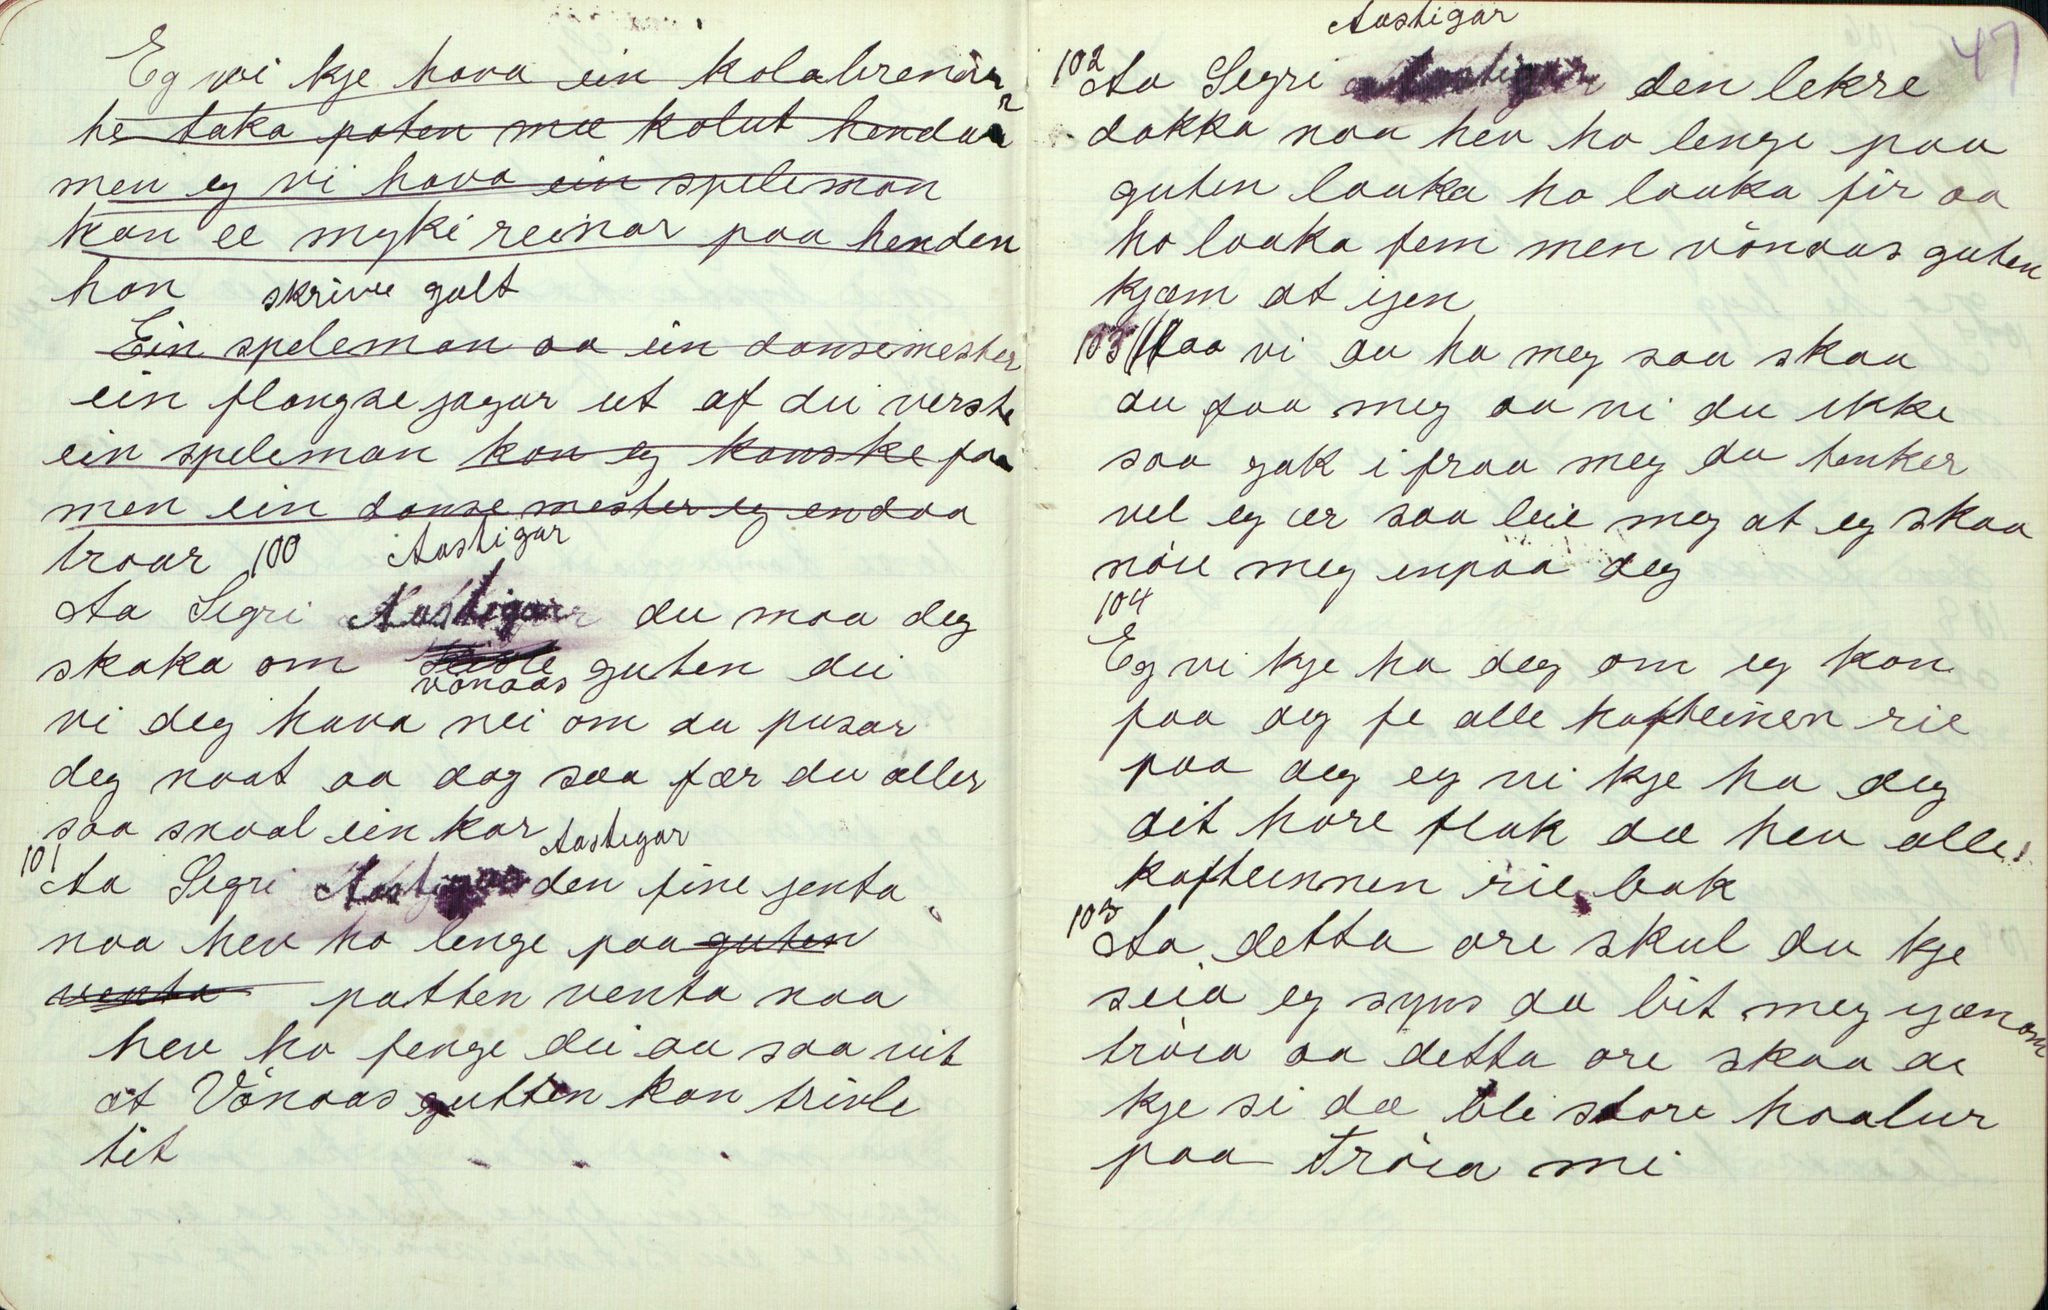 Eg vi kje hava ein kolabrenar
he taka poten mæ kolut hendar
men eg vi hava ein speleman
han ee myki reinar paa henden
han skrive galt
Ein speleman aa ein dansemester
ein flongse jagar ut af dei verste
ein speleman kan eg kanske faa
men ein danse mester eg endaa
traar
100 Aastigar
Aa Segri Aastigar du maa deg
skaka om guten dei
vönaas
vi deg hava nei om du pusar
deg naat aa dag saa fær du aller
saa snaal ein kar
Aastigar
101 Aa Segri Aastigar den fine jenta
naa hev ho lenge paa guten
venta patten venta naa
hev ho fenge dei au saa vit
at Vönaas gutten kan trivle
tit
Aastigar
47
102 Aa Segri Aastigar den lekre
dokka naa hev ho lenge paa
guten lauka ho lauka fir aa
ho lauka fem men vönaas guten
kjæm at igen
103 Aaa vi du ha meg saa skaa
du faa meg aa vi du ikke
saa gak i fraa meg du tenker
vel eg ær saa leie meg at eg skaa
nöie meg enpaa deg
104
Eg vi kje ha deg om eg kan
faa deg fe alle kafteinen rie
paa deg eg vi kje ha deg
dit hore flak dæ hev alle
kafteinnen rie bak
103 Aa detta ore skul du kje
seia eg syns du bit meg igænom
tröia aa detta ore skaa du
kje si dæ bli store haalur
paa Tröia mi